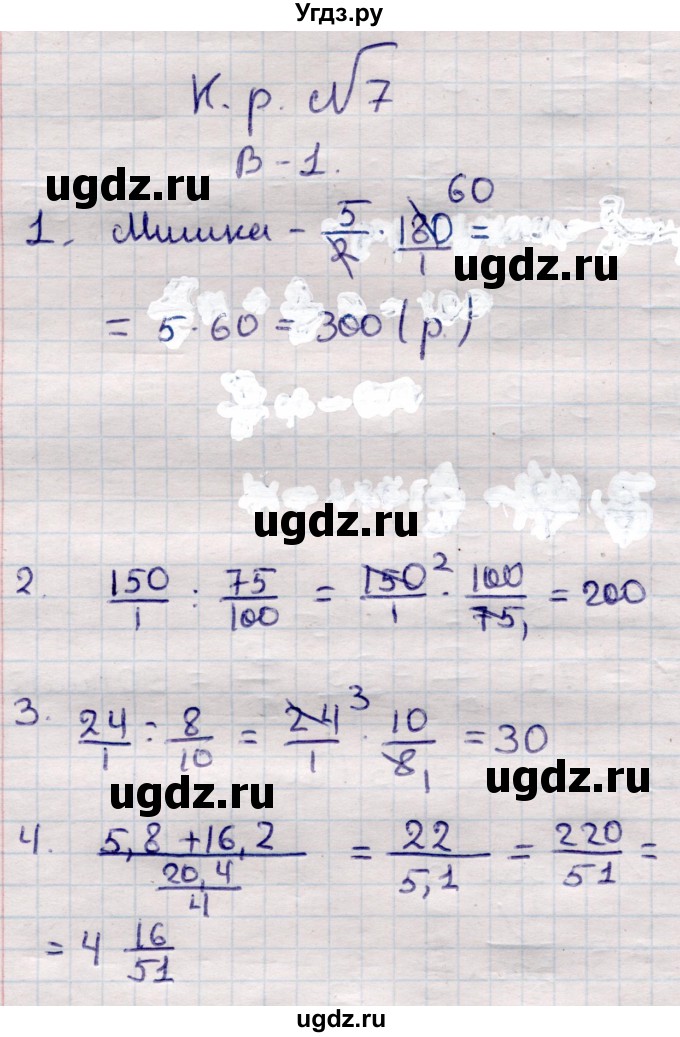 Угдз.ру
К. р. №7
В - 1.
ugdz.ru
60
1. Мишка - 5/2 · 180/1 =
ugdz.ru
= 5 · 60 = 300 (р.)
ugdz.ru
2. 150/1 : 75/100 = 150/1 ² · 100/75 ₁ = 200
3. 24/1 : 8/10 = 24/1 ³ · 10/8 ₁ = 30
ugdz.ru
ugdz.ru
4. (5,8 + 16,2)/(20,4/4) = 22/5,1 = 220/51 =
= 4 16/51
ugdz.ru